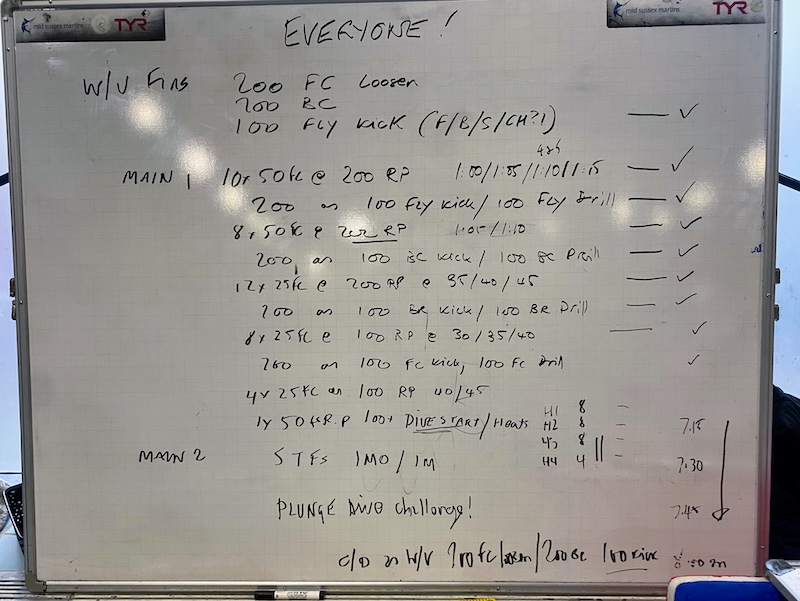 mid sussex marlins TYR
mid sussex marlins TYR
EVERYONE!
W/U Fins 200 FC Loosen
200 BC
100 FLY KICK (F/B/S/CH?!) — ✓
MAIN 1 10x 50fc @ 200 RP 1:00/1:05/1:10/1:15 — ✓
200 as 100 Fly Kick/100 Fly Drill — ✓
8x50fc @ 200 RP 1:05/1:10 — ✓
200 as 100 BC Kick/100 BC Drill — ✓
12x25fc @ 200 RP @ 35/40/45 — ✓
200 as 100 BR Kick/100 BR Drill — ✓
8x25fc @ 100 RP @ 30/35/40 — ✓
200 as 100 FC Kick, 100 FC Drill ✓
4x25fc as 100 RP 40/45
1x 50 100+ DIVE START/Heats
H1 8 –
H2 8 –
H3 8 –
H4 4 –
MAIN 2 STFs 1MO/1M
PLUNGE DIVE challenge!
7.15
7.30
7.45
c/D as W/U 200fc loosen/200BC 100 Kick